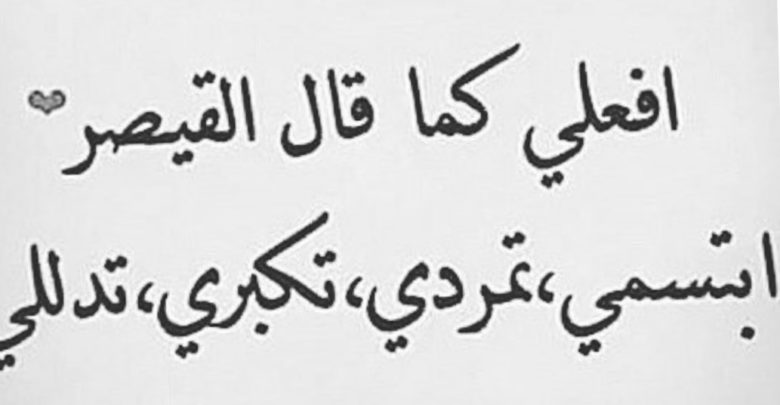 افعلي كما قال القيصر
ابتسمي،تمردي،تكبري،تدللي